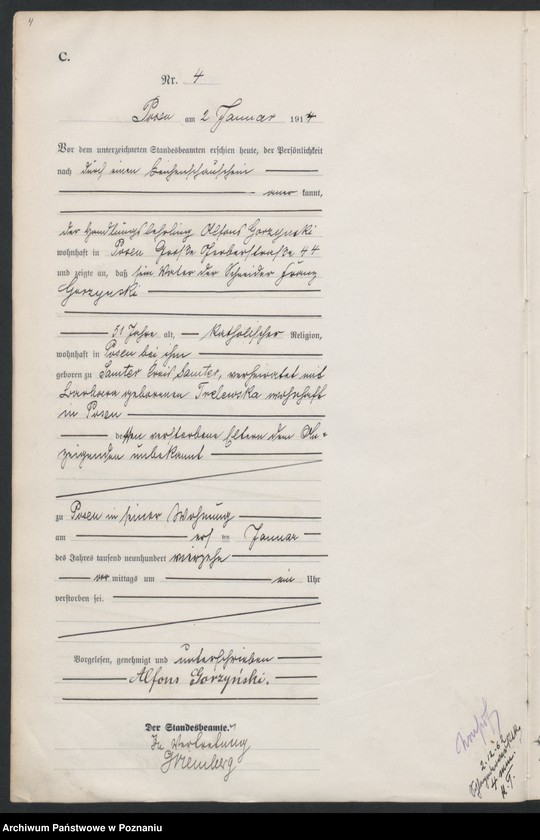 4
C.
Nr. 4
Posen am 2 Januar 1914
Vor dem unterzeichneten Standesbeamten erschien heute, der Persönlichkeit
nach durch einen Leichenschauschein
aner kannt,
der Handlungslehrling Alfons Gorzynski
wohnhaft in Posen Große Gerberstraße 44
und zeigte an, daß sein Vater der Schneider Franz
Gorzynski
51 Jahre alt, katholischer Religion,
wohnhaft in Posen bei ihm
geboren zu Samter Kreis Samter, verheiratet mit
Barbara geborenen Trelewska wohnhaft
in Posen
dessen verstorbene Eltern dem An-
zeigenden unbekannt
zu Posen in seiner Wohnung
am ersten Januar
des Jahres tausend neunhundert vierzehn
vor mittags um ein Uhr
verstorben sei.
Vorgelesen, genehmigt und unterschrieben
Alfons Gorzyński.
Der Standesbeamte.
In Vertretung
Archiwum Państwowe w Poznaniu